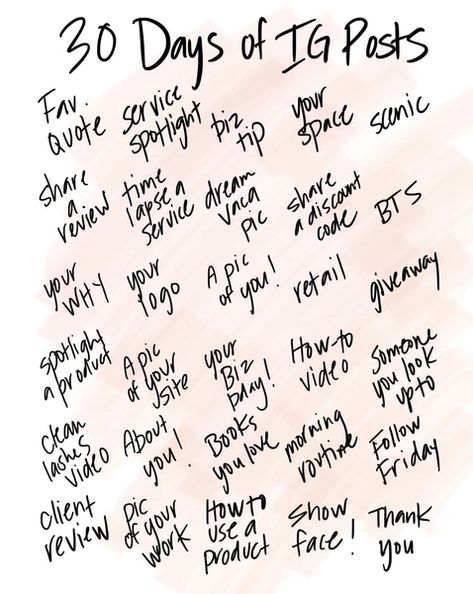 30 Days of IG Posts
Fav.
Quote
service
spotlight
biz
tip
your
space
scenic
share
a
review
time
lapse a
service
dream
vaca
pic
share
a discount
code
BTS
your
WHY
your
logo
A pic
of you!
retail
giveaway
spotlight
a product
A pic
of your
site
your
Biz
bday!
How-to
video
Someone
you look
up to
clean
lashes
video
About
you!
Books
you love
morning
routine
Follow
Friday
client
review
pic
of your
work
How to
use a
product
Show
face!
Thank
you